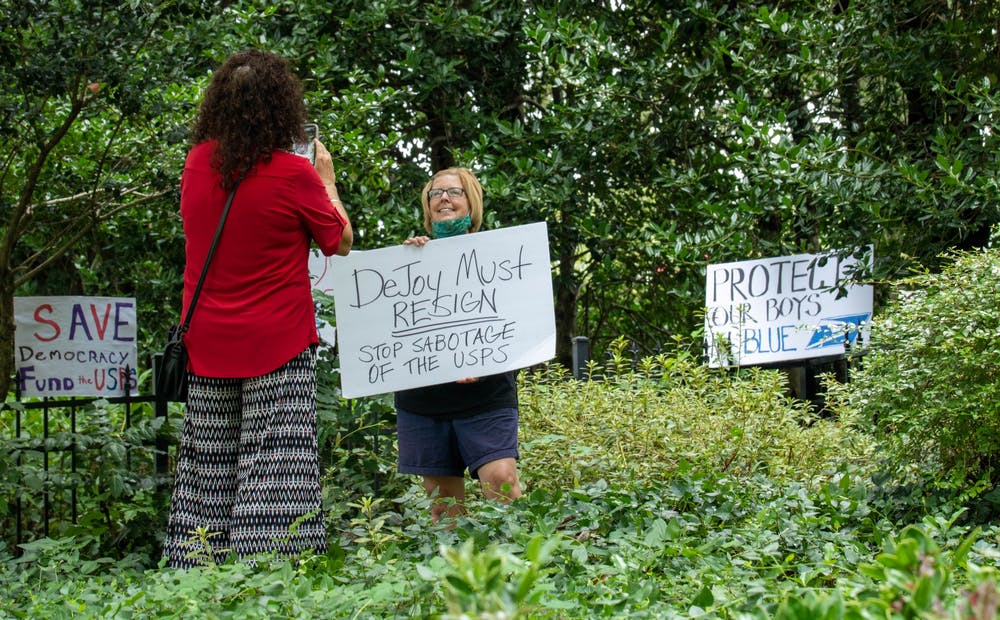 SAVE
DEMOCRACY
FUND the USPS
DeJoy Must
RESIGN
STOP SABOTAGE
OF THE USPS
PROTECT
OUR BOYS
BLUE